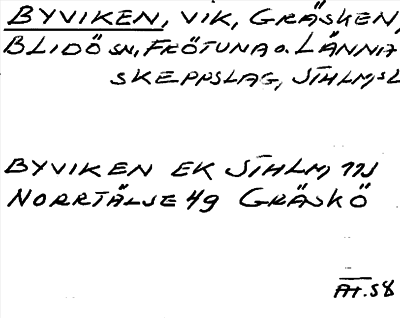 BYVIKEN, VIK, GRÄSKEN,
BLIDÖ SN, FRÖTUNA O. LÄNNA
SKEPPSLAG, STHLMS L
BYVIKEN EK STHLM 11J
NORRTÄLJE 4g GRÄSKÖ
AH. 58